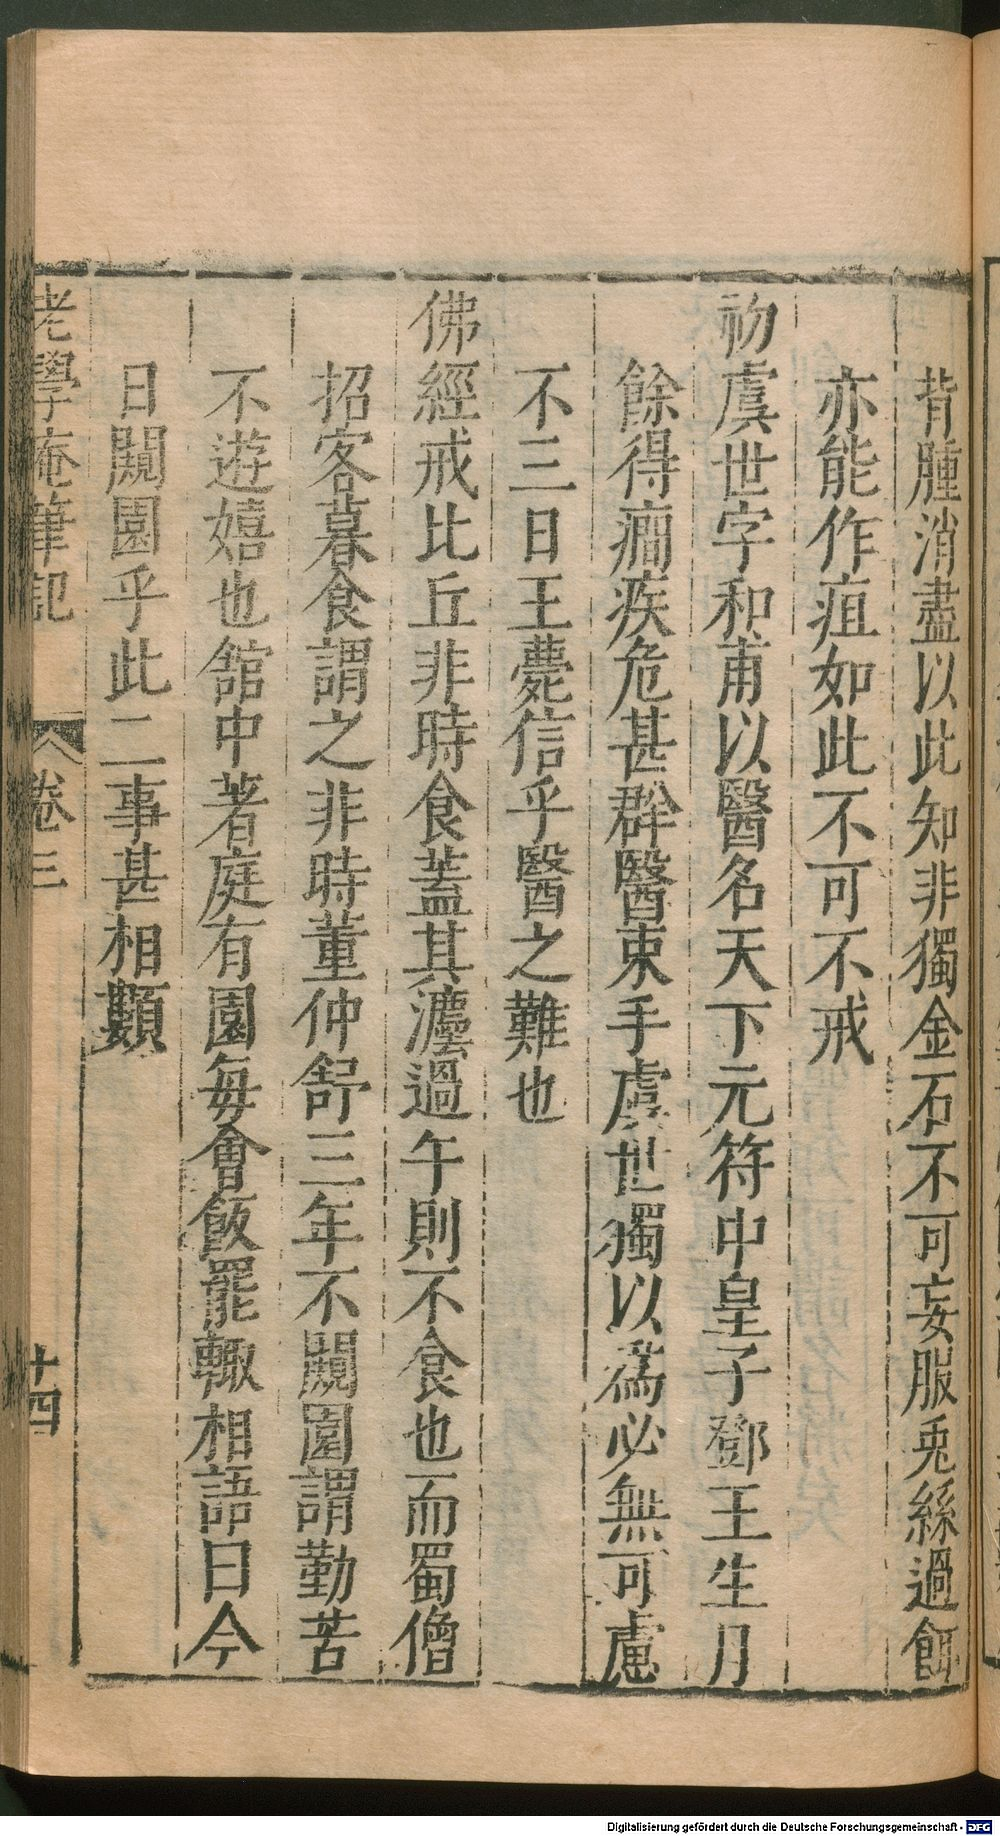 背腫消盡以此知非獨金石不可妄服兎絲過餌
亦能作疽如此不可不戒
初虞世字和甫以醫名天下元符中皇子鄧王生月
餘得癎疾危甚群醫束手虞世獨以爲必無可慮
不三日王薨信乎醫之難也
佛經戒比丘非時食蓋其灋過午則不食也而蜀僧
招客暮食謂之非時董仲舒三年不闚園謂勤苦
不遊嬉也舘中著庭有園每會飯罷輙相語曰今
日闚園乎此二事甚相類
老學庵筆記
卷三
十四
Digitalisierung gefördert durch die Deutsche Forschungsgemeinschaft - DFG